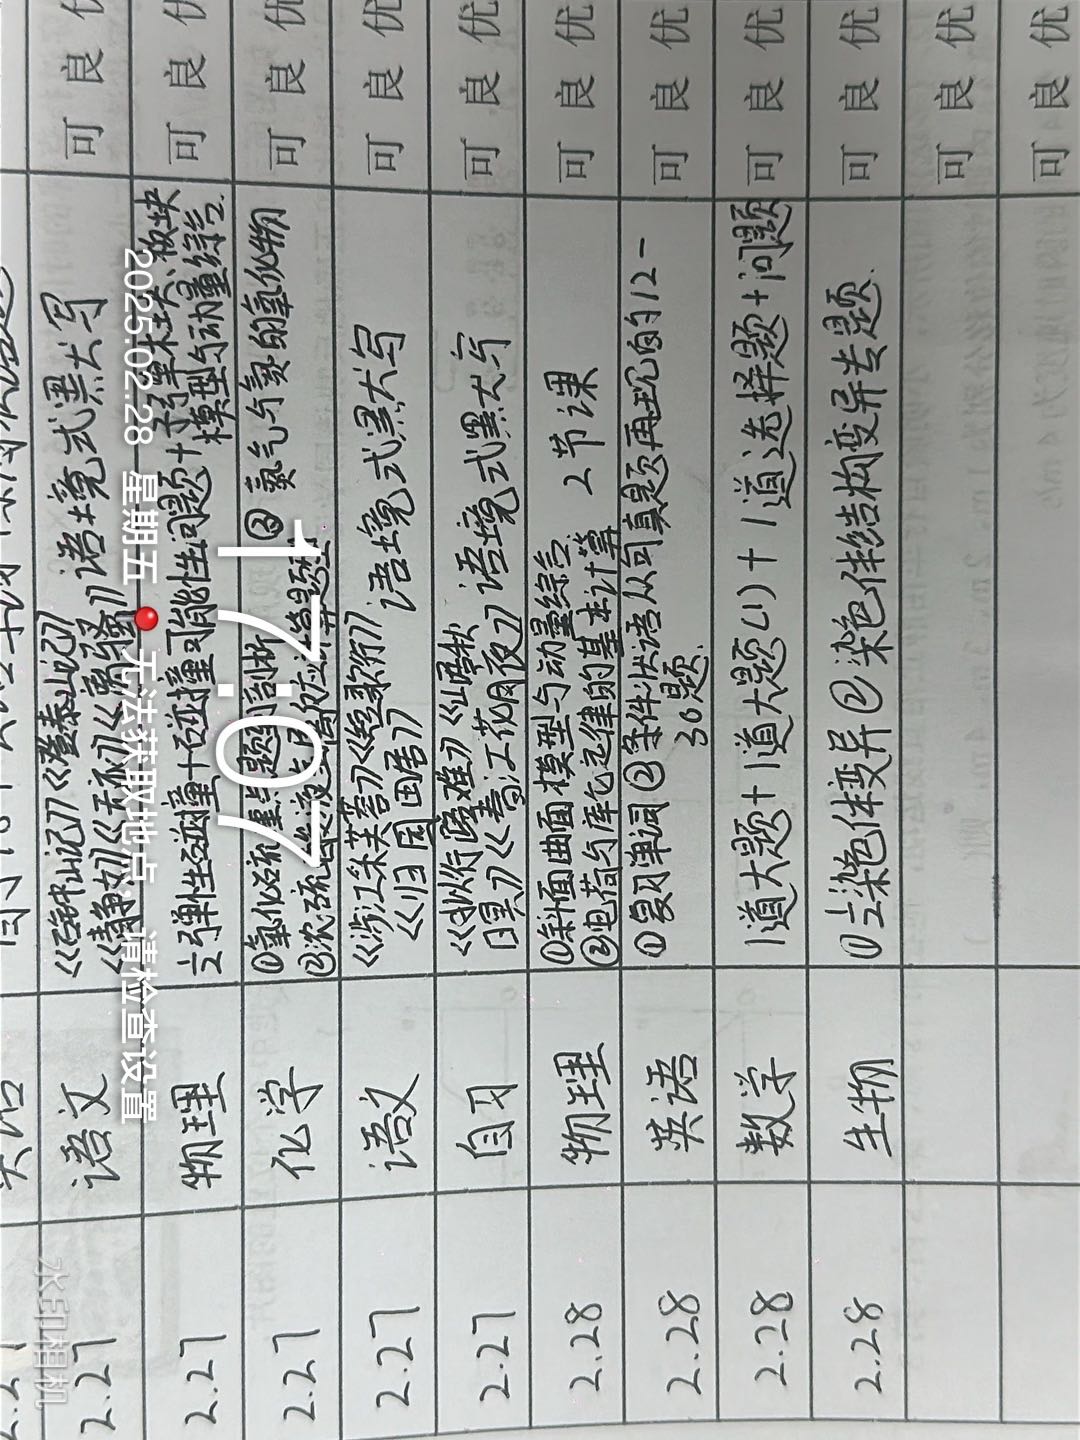 2.27 语文 《石钟山记》《登泰山记》
《静女》《无衣》《离骚》语境式默写 可 良 优
2.27 物理 弹性碰撞+碰撞可能性问题+子弹木块、板块
模型与动量综合 可 良 优
2.27 化学 ①氧化硫重点题剖析 ③氨气与氮的氧化物
②浓硫酸 可 良 优
2.27 语文 《涉江采芙蓉》《短歌行》
《归园田居》 语境式默写 可 良 优
2.27 自习 《拟行路难》《梧桐
《春江花月夜》 语境式默写 可 良 优
2.28 物理 ①斜面曲面模型与动量综合
②电荷与库仑定律的基本计算 2节课 可 良 优
2.28 英语 ①复习单词 ②条件状语从句真题再现的12-
30题. 可 良 优
2.28 数学 1道大题+1道大题(1)+1道选择题+问题 可 良 优
2.28 生物 ①染色体变异 ②染色体结构变异专题. 可 良 优
可 良 优
可 良 优
17:07
2025.02.28 星期五
无法获取地点,请检查设置
水印相机